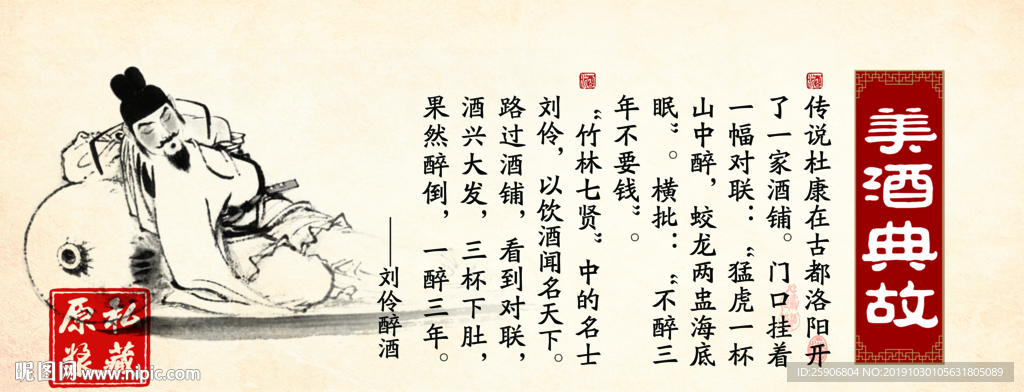 美酒典故
传说杜康在古都洛阳开
了一家酒铺。门口挂着
一幅对联：“猛虎一杯
山中醉，蛟龙两盅海底
眠”。横批：“不醉三
年不要钱”。
“竹林七贤”中的名士
刘伶，以饮酒闻名天下。
路过酒铺，看到对联，
酒兴大发，三杯下肚，
果然醉倒，一醉三年。
——刘伶醉酒
私藏
原浆
昵图网 www.nipic.com
ID:25906804 NO:20191030105631805089